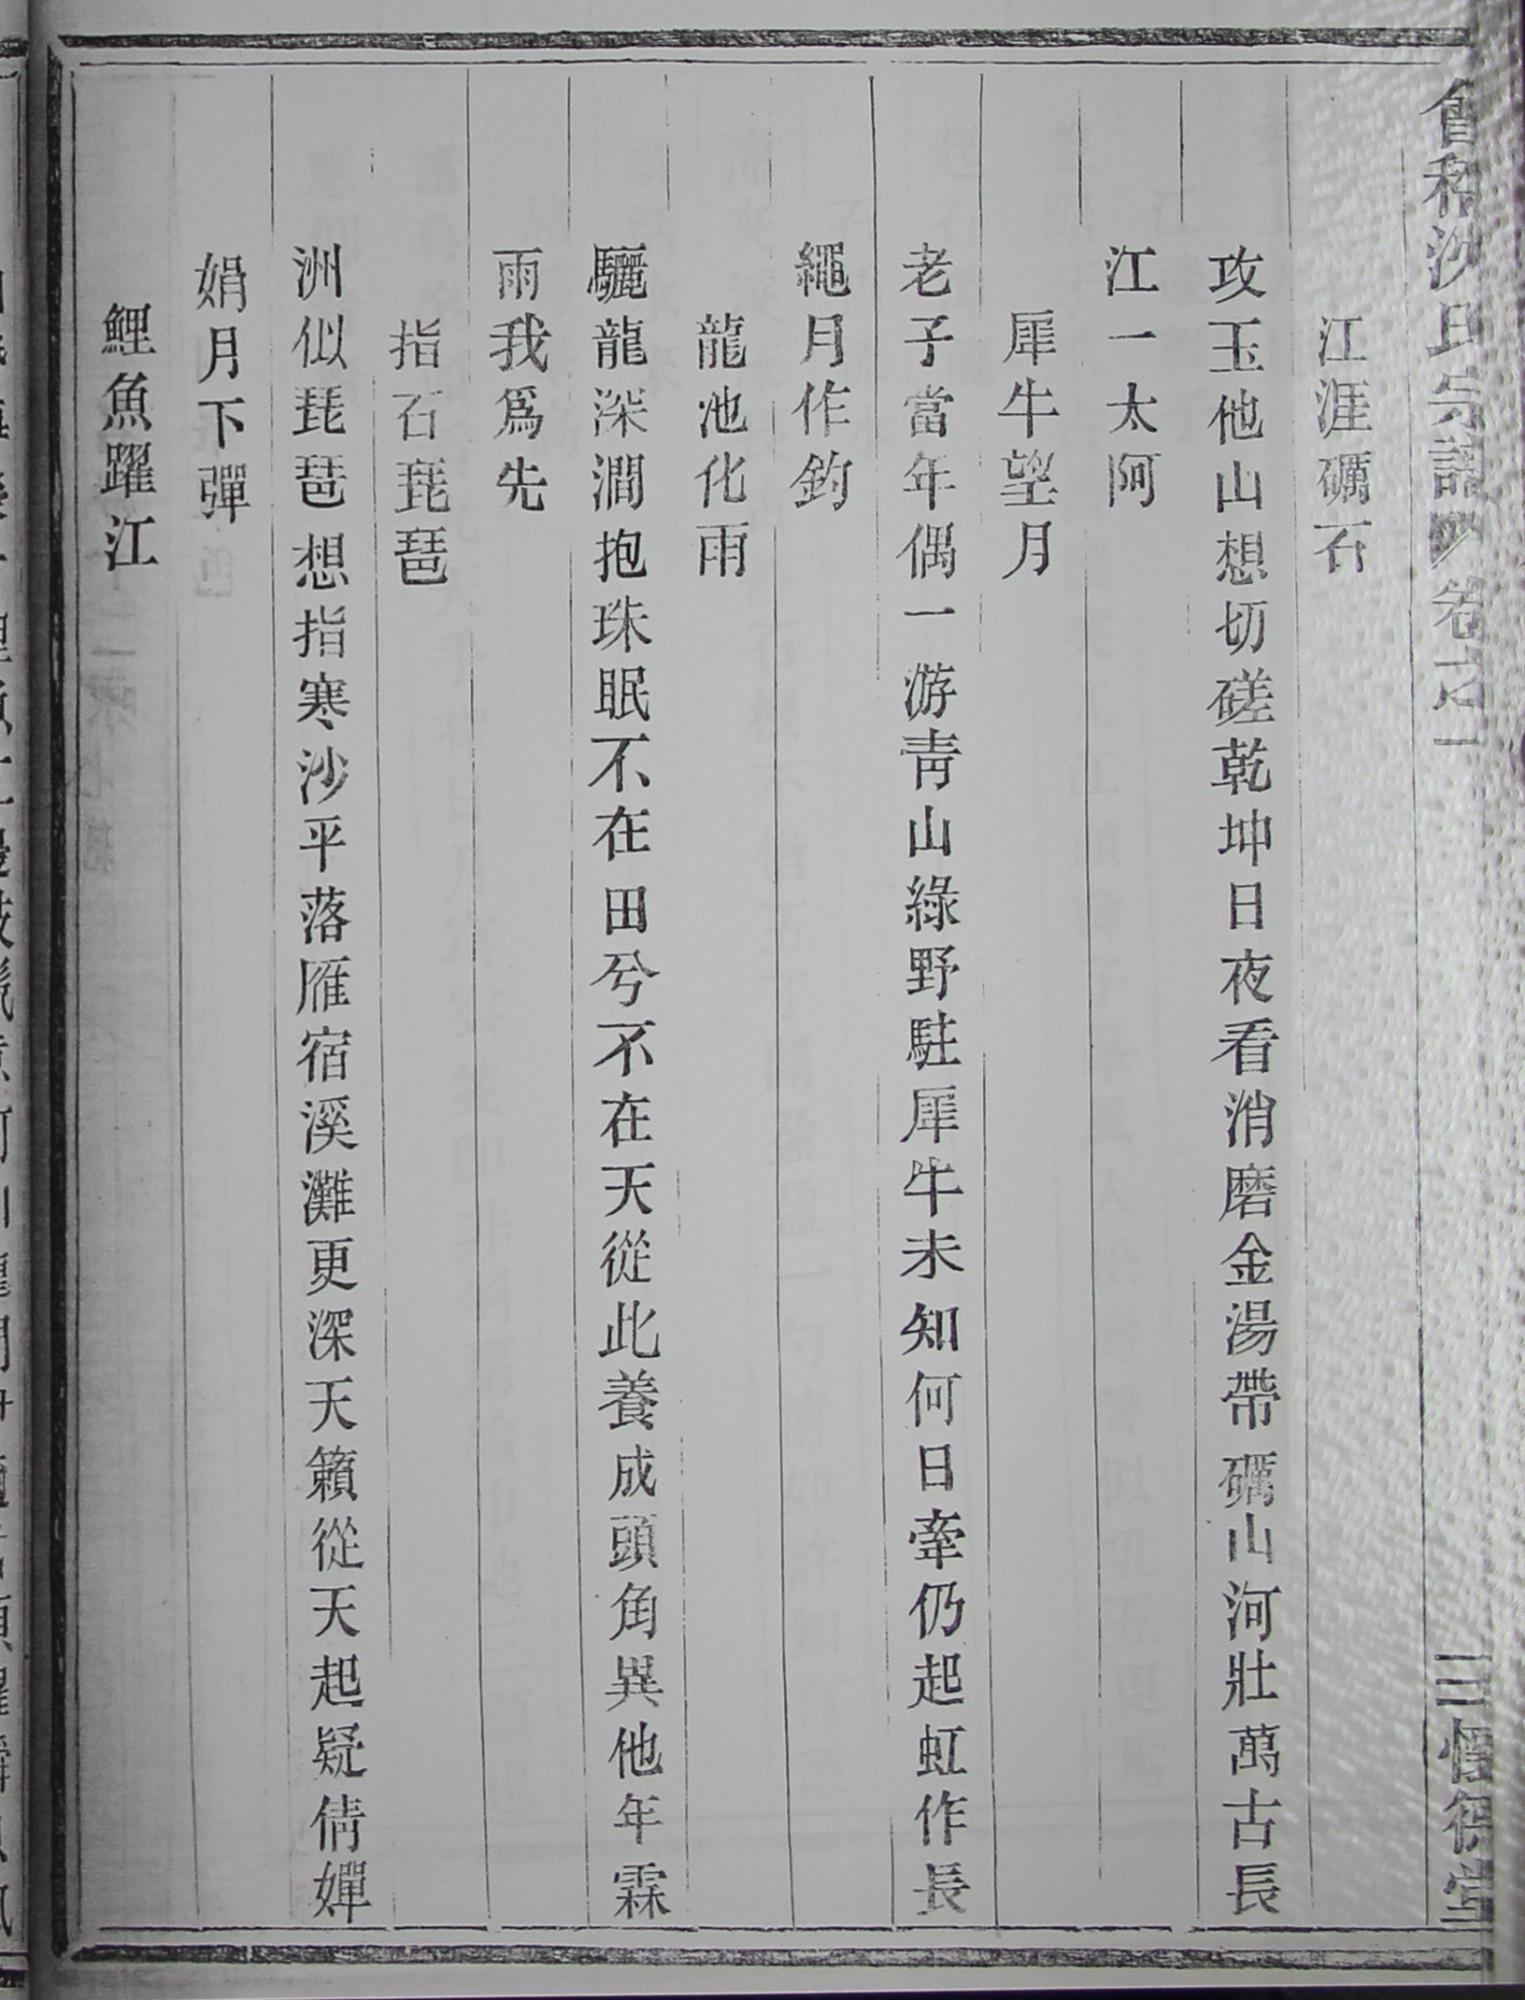 和沙氏宗譜 卷之一 三 堂
江涯礪石
攻玉他山想切磋乾坤日夜看消磨金湯帶礪山河壯萬古長
江一太阿
犀牛望月
老子當年偶一游靑山綠野駐犀牛未知何日牽仍起虹作長
繩月作鈎
龍池化雨
驪龍深澗抱珠眠不在田兮不在天從此養成頭角異他年霖
雨我爲先
指石琵琶
洲似琵琶想指寒沙平落雁宿溪灘更深天籟從天起疑倩嬋
娟月下彈
鯉魚躍江